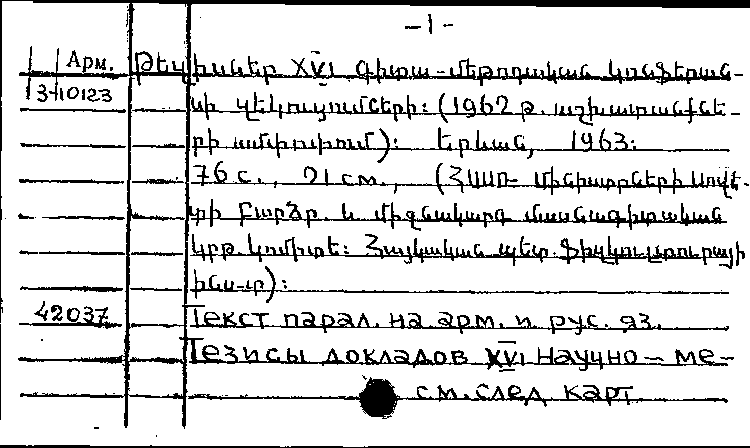 -1-
Арм. Թեզիսներ XVI գիտա-մեթոդական կոնֆերան-
3-10123 սի զեկուցումների: (1962 թ. աշխատանքնե-
րի ամփոփում): Երևան, 1963:
76 с., 21 см., (ՀՍՍՌ Մինիստրների Սովե-
տի Բարձր. և միջնակարգ մասնագիտական
կրթ. կոմիտե: Հայկական պետ. ֆիզկուլտուրայի
ինս-տ):
42037 Текст парал. на арм. и рус. яз.
Тезисы докладов XVI научно-ме-
см. след карт.